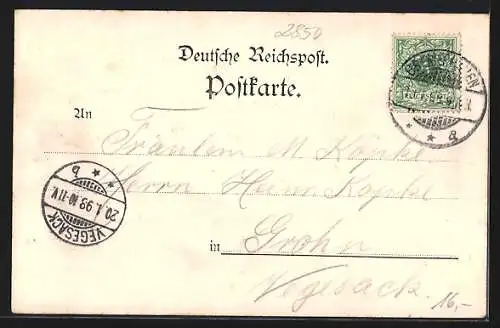 2850
Deutsche Reichspost.
Postkarte.
An
Fräulein M Köpke
Herrn Heinr. Köpke
in Grohn
Vegesack.
VEGESACK
20.1.99.10-11V.
* * b
* * a
16,-